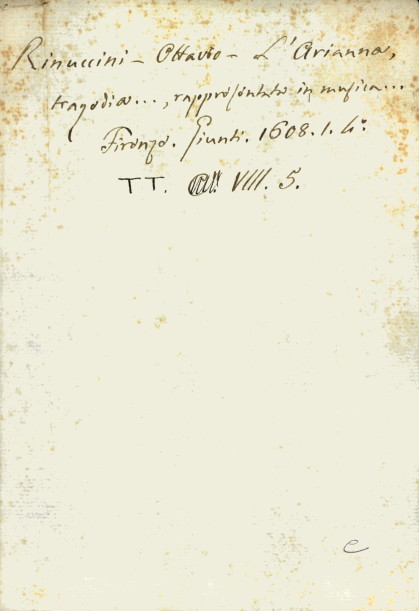 Rinuccini - Ottavio - L'Arianna,
tragedia..., rappresentata in musica...
Firenze. Giunti. 1608. 1. 4º
TT. VIII. 5.
e